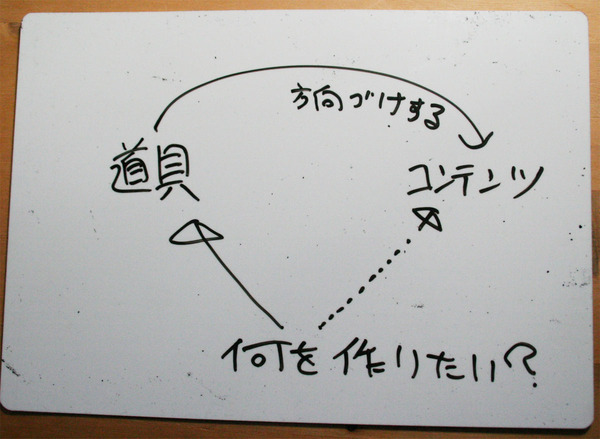 方向づけする
道具
コンテンツ
何を作りたい?